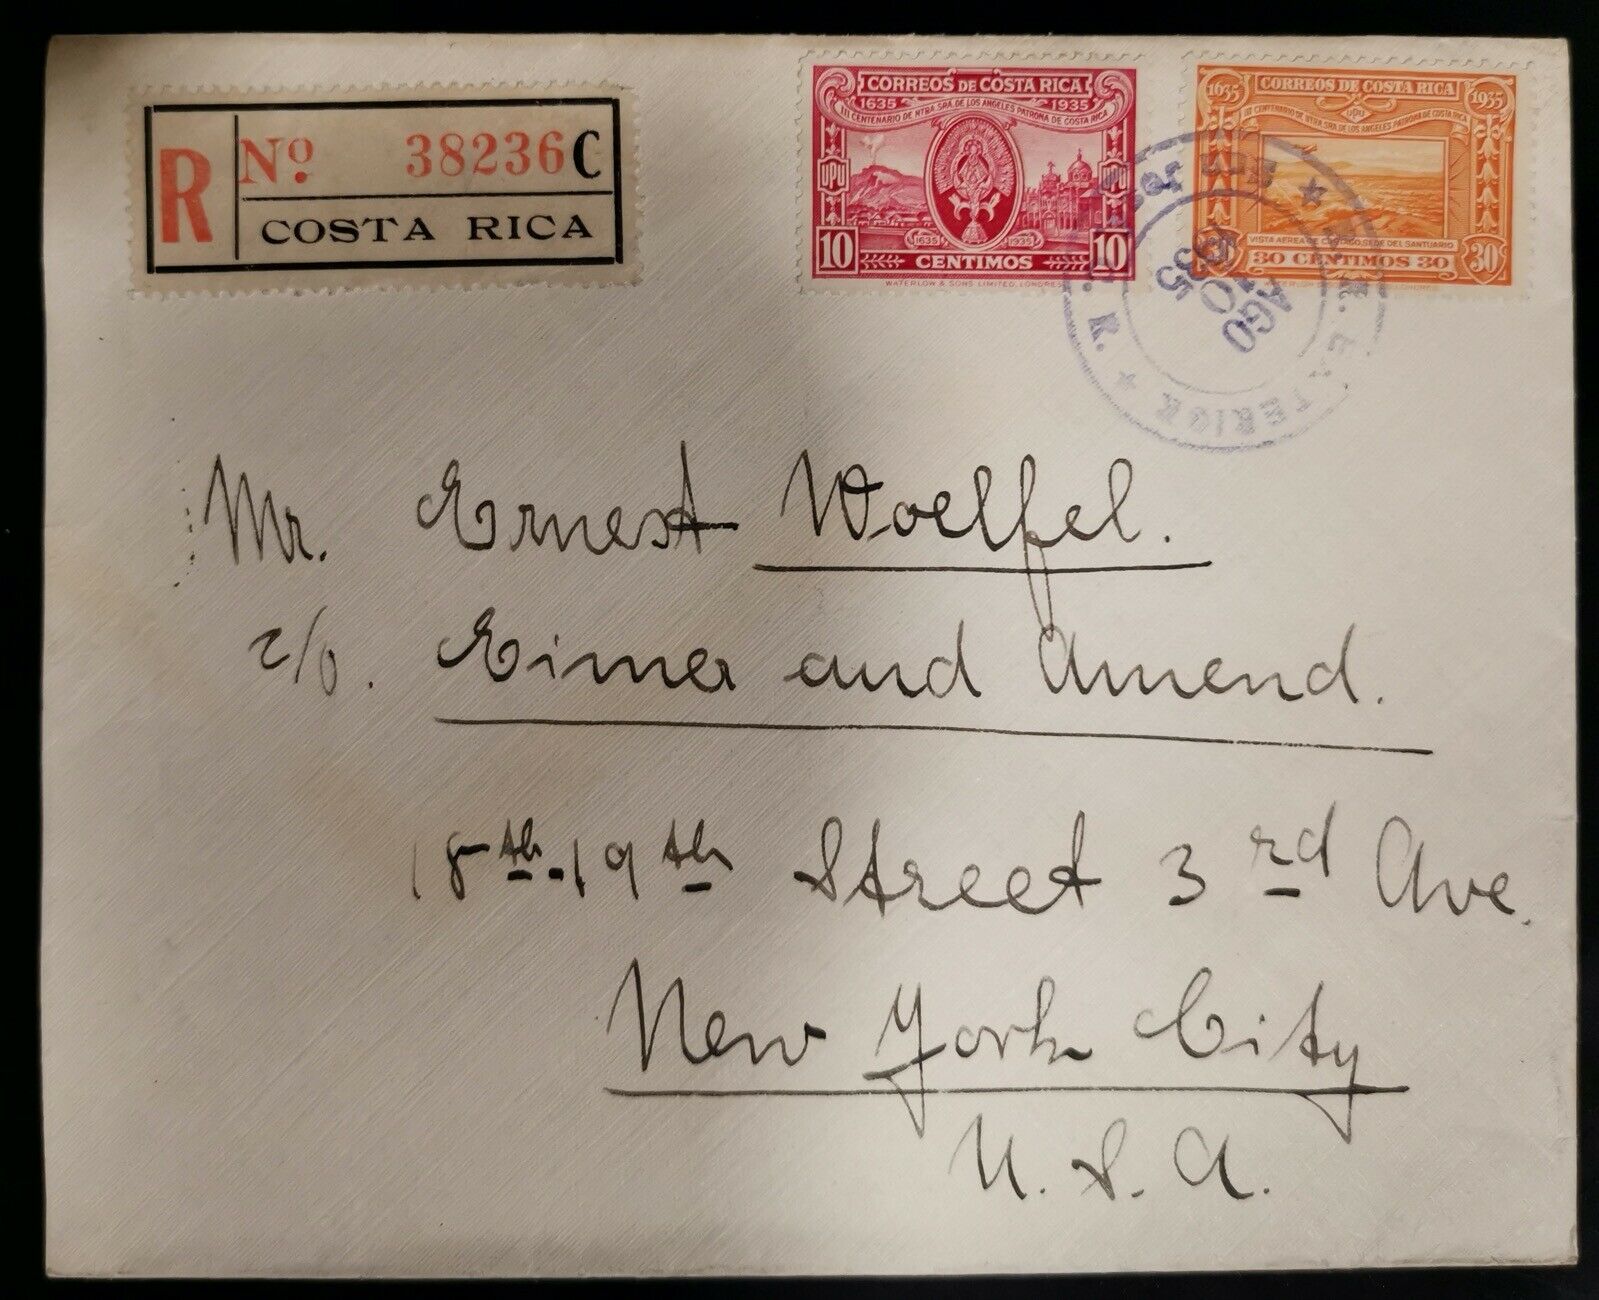 R
Nº 38236 C
COSTA RICA
CORREOS DE COSTA RICA
1635 1935
III CENTENARIO DE NTRA. SRA. DE LOS ANGELES PATRONA DE COSTA RICA
UPU
1635 1935
10 CENTIMOS 10
WATERLOW & SONS LIMITED, LONDRES
CORREOS DE COSTA RICA
1635 UPU 1935
III CENTENARIO DE NTRA. SRA. DE LOS ANGELES PATRONA DE COSTA RICA
VISTA AEREA DE CARTAGO, SEDE DEL SANTUARIO
30 30 CENTIMOS 30 30
AGO
35
R.
Mr. Ernest Woelfel.
c/o. Eimer and Amend.
18th-19th Street 3rd Ave.
New York City
U.S.A.